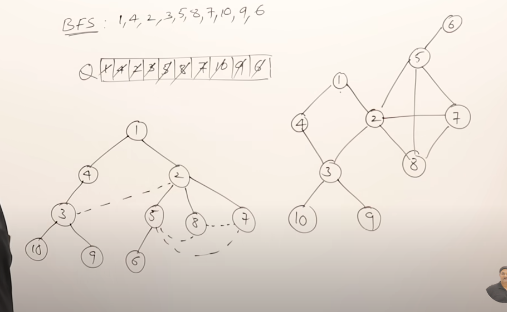 BFS : 1,4,2,3,5,8,7,10,9,6
Q 1 4 2 3 5 8 7 10 9 6
1
4 2
3 5 8 7
10 9 6
6
5
1
4 2 7
3 8
10 9